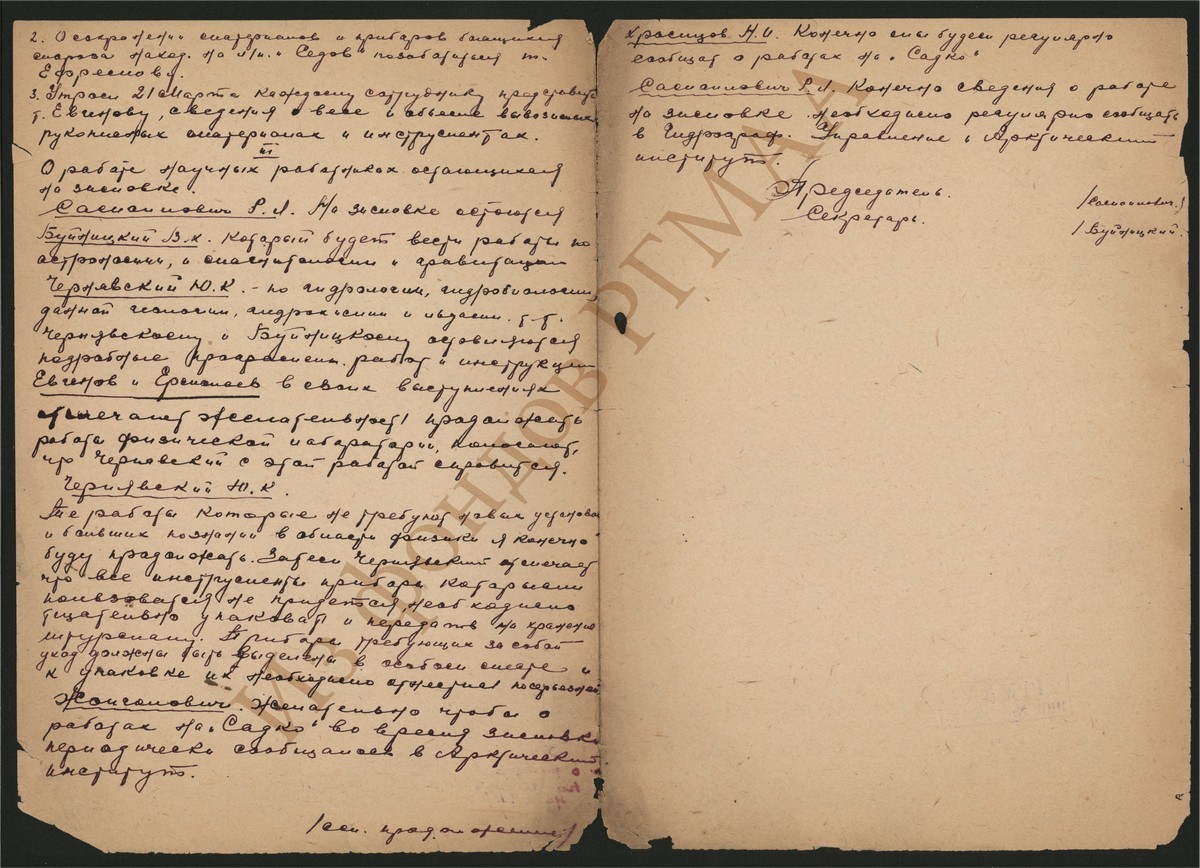 2. О сохранении материалов и приборов
наход. на л.п. "Седов" позаботиться т.
Ефремову.
3. Утром 21 марта каждому сотруднику представить
т. Евгенову, сведения о весе и объеме вывозимых
рукописных материалах и инструментах.
III
О работе научных работников остающихся
на зимовке.
Самойлович Р.Л. На зимовке остаются
Буйницкий В.Х. который будет вести работы по
астрономии, и магнитологии и гравитации
Чернявский Ю.К. - по гидрологии, гидробиологии,
данной геологии, гидрохимии и т.т.
Чернявскому и Буйницкому оставляются
подробные программы работ и инструкции
Евгенов и Ермолаев в своих выступлениях
отмечают желательность продолжать
работы физической лаборатории, полагают,
что Чернявский с этой работой справится.
Чернявский Ю.К.
Те работы которые не требуют новых установок
и больших познаний в области физики я конечно
буду продолжать. Затем Чернявский отмечает
что все инструменты приборы которыми
пользоватся не придется, необходимо
тщательно упаковать и передать на хранение
штурману. Приборы требующих за собой
уход должны быть выделены в особом месте и
к упаковке их необходимо отнестись посерьезней
Жонголович. Желательно чтобы о
работах на "Садко" во время зимовки
периодически сообщалось в Арктический
институт.
/см. продолжение/
Хромцов Н.И. Конечно мы будем регулярно
сообщат о работах на "Садко"
Самойлович Р.Л. Конечно сведения о работе
на зимовке необходимо регулярно сообщать
в Гидрограф. Управление и Арктический
институт.
Председатель. /Самойлович./
Секретарь. /Буйницкий.
ИЗ ФОНДОВ РГМАА